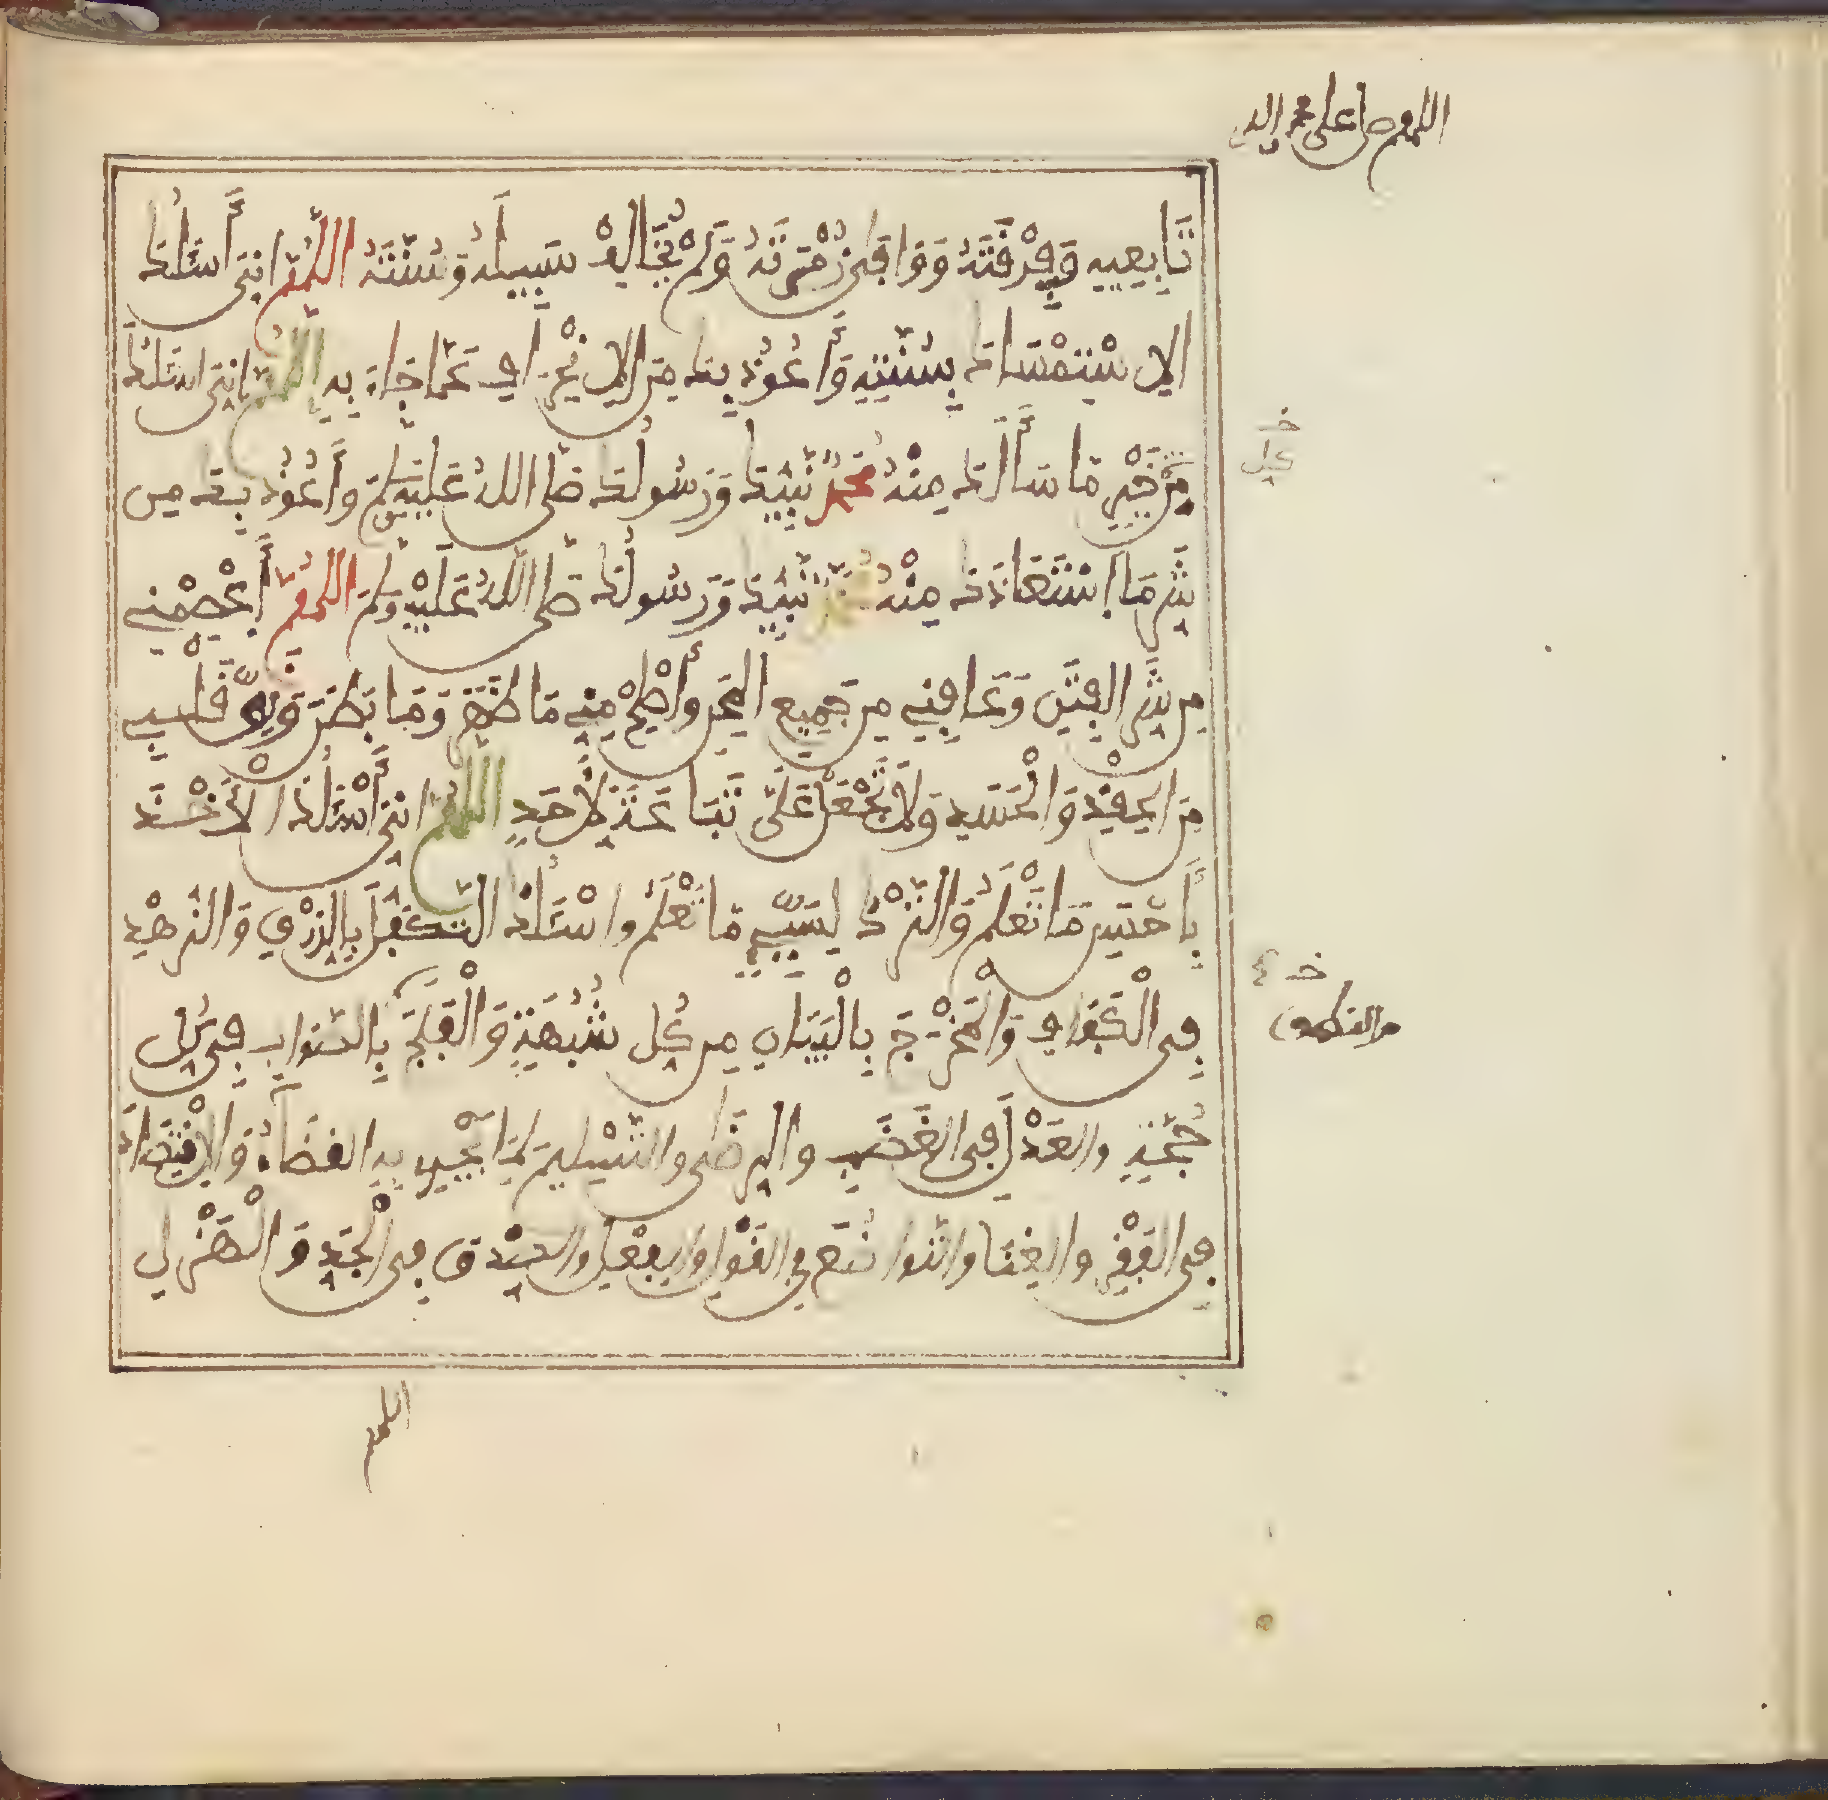 اللهم صل على محمد واله
تَابِعِيهِ وَفِرْقَتَهُ وَوَافَقَ زُمْرَتَهُ وَلَمْ يُخَالِفْ سَبِيلَهُ وَسُنَّتَهُ اللَّهُمَّ انِّى أَسْئَلُكَ
الاِسْتِمْسَاكَ بِسُنَّتِهِ وَأَعُوذُ بِكَ مِنَ الاِنْحِرَافِ عَمَّا جَاءَ بِهِ اللَّهُمَّ انِّى اسْئَلُكَ
مِنْ خَيْرِ مَا سَأَلَكَ مِنْهُ مُحَمَّدٌ نَبِيُّكَ وَرَسُولُكَ صَلَّى اللهُ عَلَيْهِ وَسَلَّمَ وَأَعُوذُ بِكَ مِن
شَرِّ مَا اسْتَعَاذَكَ مِنْهُ مُحَمَّدٌ نَبِيُّكَ وَرَسُولُكَ صَلَّى اللهُ عَلَيْهِ وَسَلَّمَ اللَّهُمَّ أَعْصِمْنِي
مِن شَرِّ الفِتَنِ وَعَافِنِي مِن جَمِيعِ المِحَنِ وأَصْلِحْ مِنِّي مَا ظَهَرَ وَمَا بَطَنَ وَنَقِّ قَلْبِي
مِنَ الحِقْدِ وَالْحَسَدِ وَلاَ تَجْعَلْ عَلَيَّ تَبَاعَةً لاَحَدٍ اللَّهُمَّ انِّى أَسْئَلُكَ الأَخْذَ
بِأَحْسَنِ مَا تَعْلَمُ وَالتَّرْكَ لِسَيِّئِ مَا تَعْلَمُ واسْئَلُكَ التَّكَفُّلَ بِالرِّزْقِ وَالزُّهْدَ
فِى الْكَفَافِ وَالْمَخْرَجَ بِالْبَيَانِ مِن كُلِّ شُبْهَةٍ وَالْفَلَجَ بِالصَّوَابِ فِى كُلِّ
حُجَّةٍ والعَدْلَ فِى الغَضَبِ والرِّضَى والتَّسْلِيمَ لِمَا يَجْرِي بِهِ القَضَاءُ وَالاِقْتِصَادَ
فِى الفَقْرِ والغِنَا والتَّوَاضُعَ فِي القَوْلِ والفِعْلِ والصِّدْقَ فِى الْجِدِّ وَالْهَزْلِ
اللهم